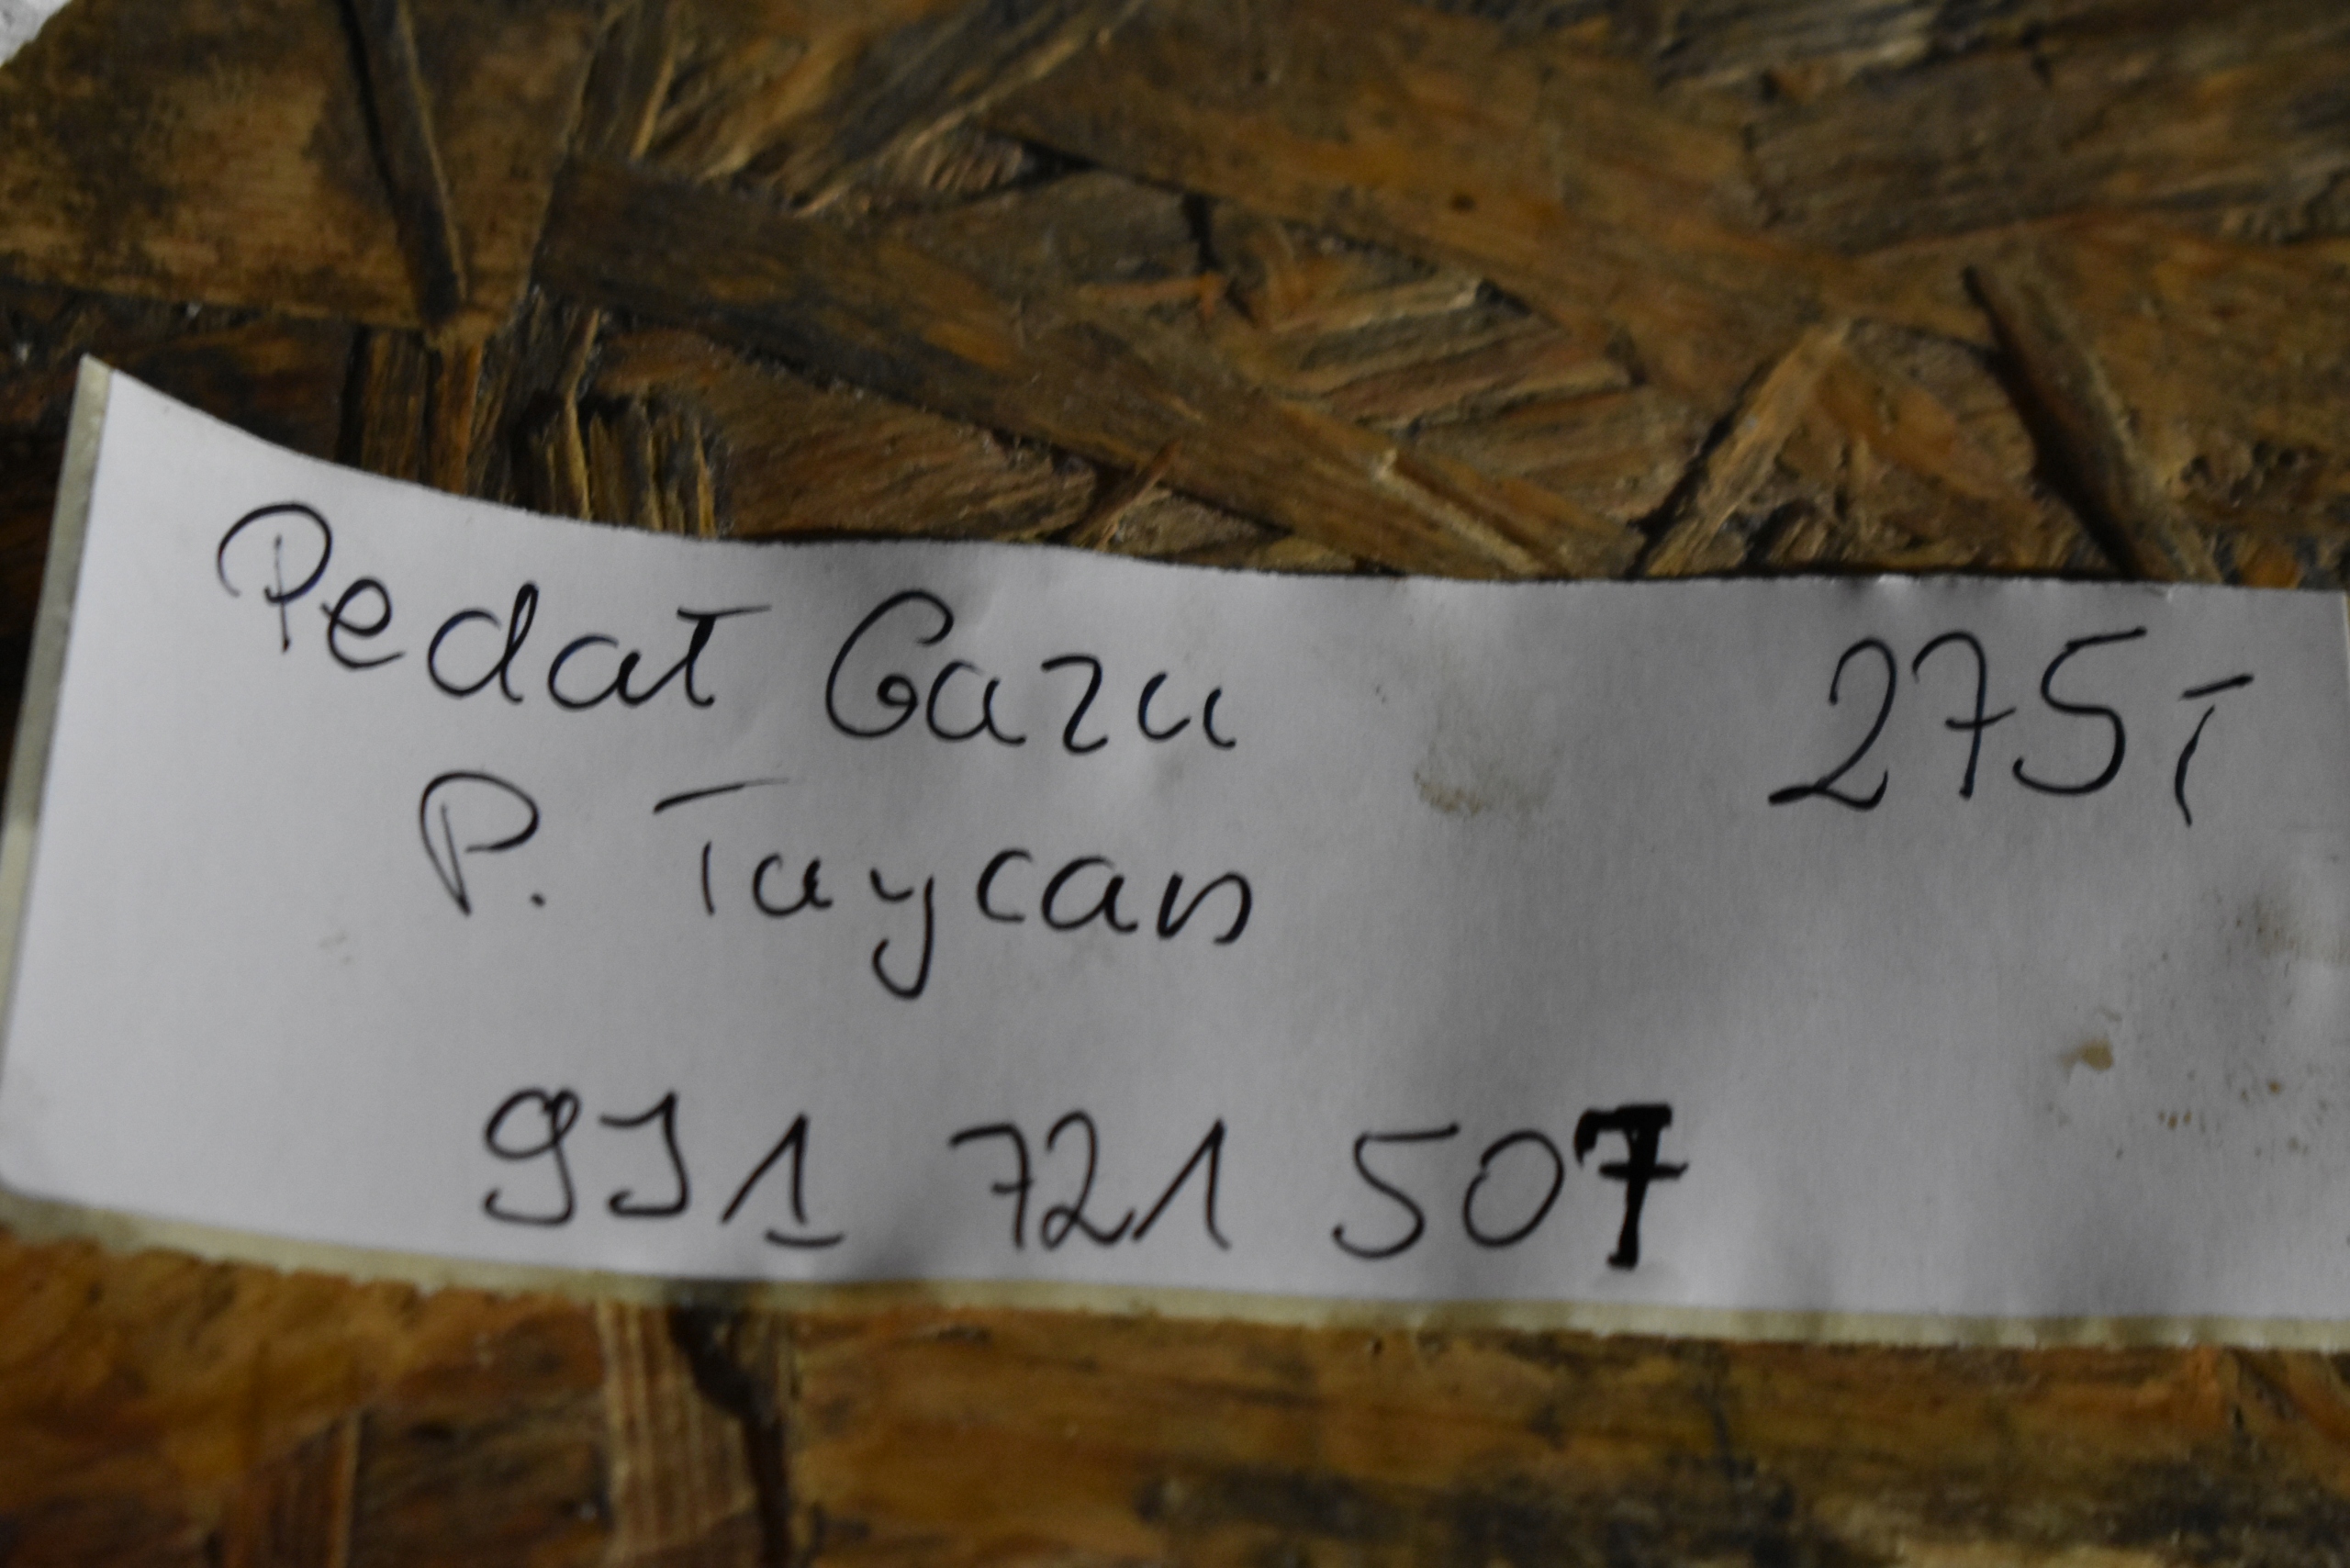 Pedał Gazu 275T
P. Taycan
9J1 721 507